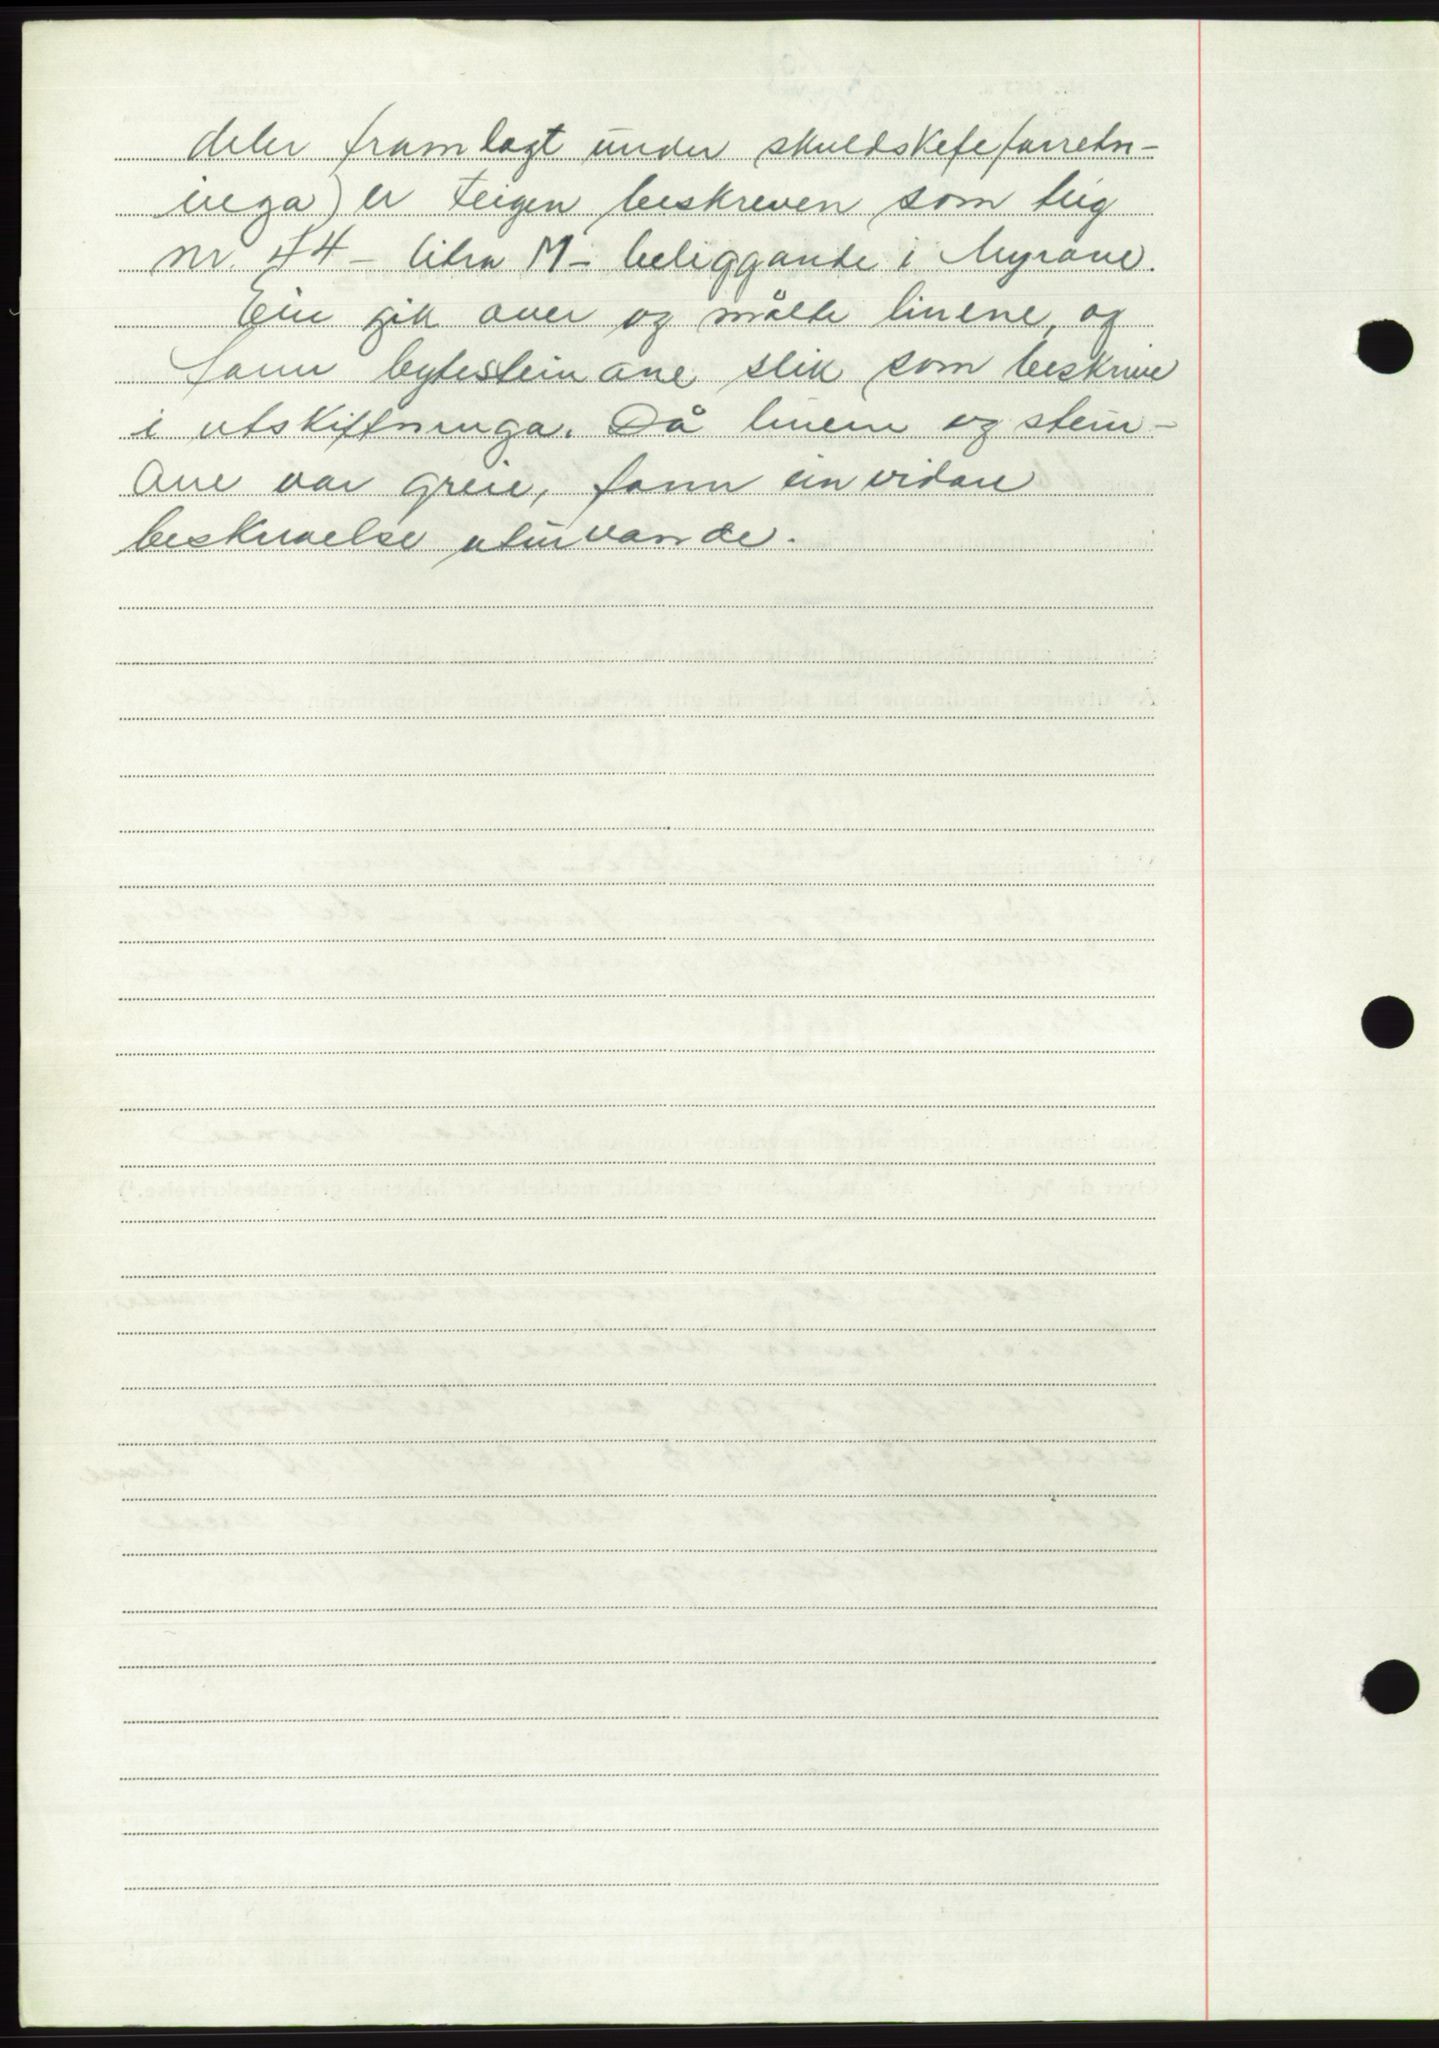 deler framlagt under skuldsketeforretn-
inga) er teigen beskreven som teig
nr. 44 - litra M - beliggande i Myrane.
Ein gik over og målte linene, og
fann bytesteinane slik som beskrive
i utskiftninga. Då linene og stein-
ane var greie, fann ein vidare
beskrivelse uturvande.